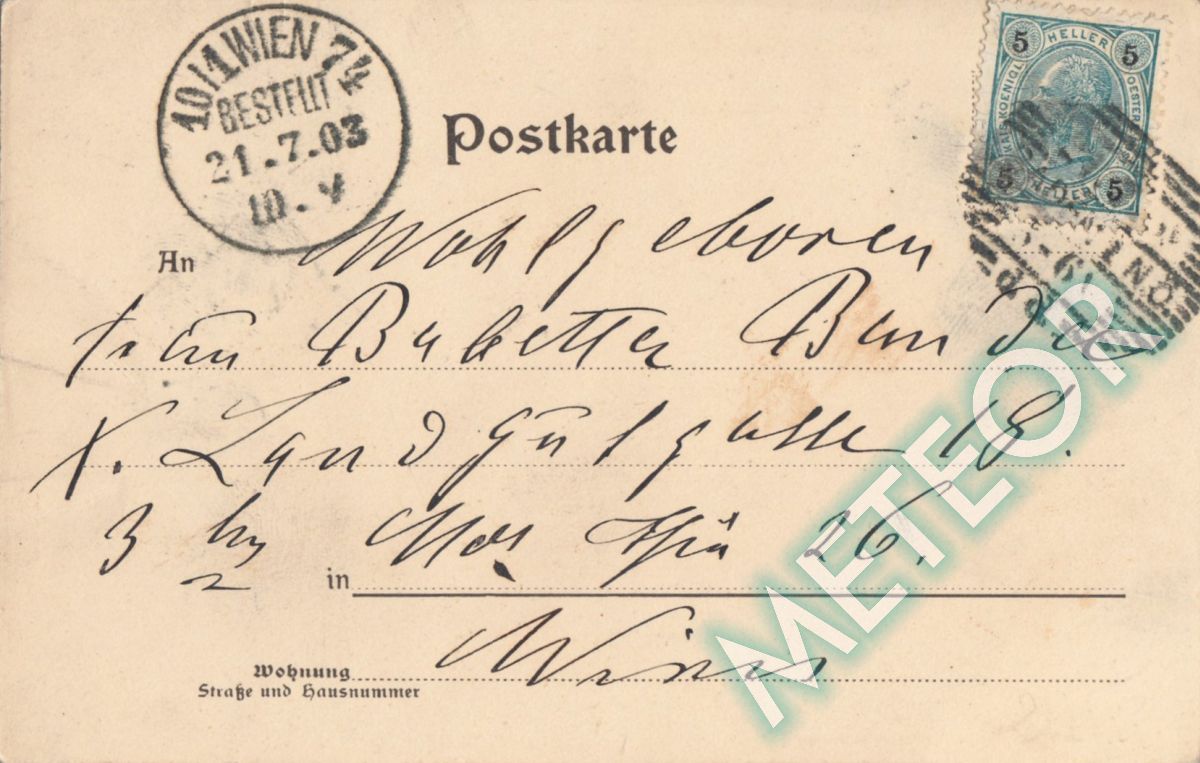 10/1 WIEN 74
BESTELLT
21.7.03
10.V
Postkarte
5 HELLER 5
KAISERL. KOENIGL. OESTERR.
5 HELLER 5
An Wohlgeboren
Frau Babette
X. Landgutgasse 18.
3 26.
in
Wien
Wohnung
Straße und Hausnummer
METEOR